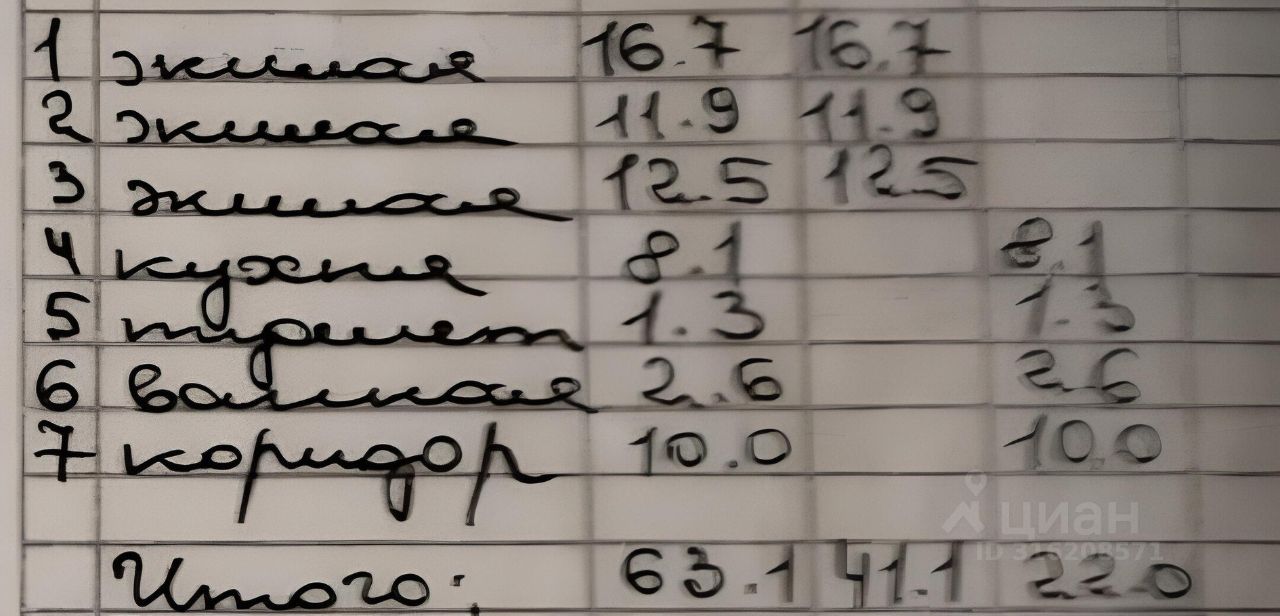 1 жилая 16.7 16.7
2 жилая 11.9 11.9
3 жилая 12.5 12.5
4 кухня 8.1 8.1
5 туалет 1.3 1.3
6 ванная 2.6 2.6
7 коридор 10.0 10.0
циан
Итого: 63.1 41.1 22.0